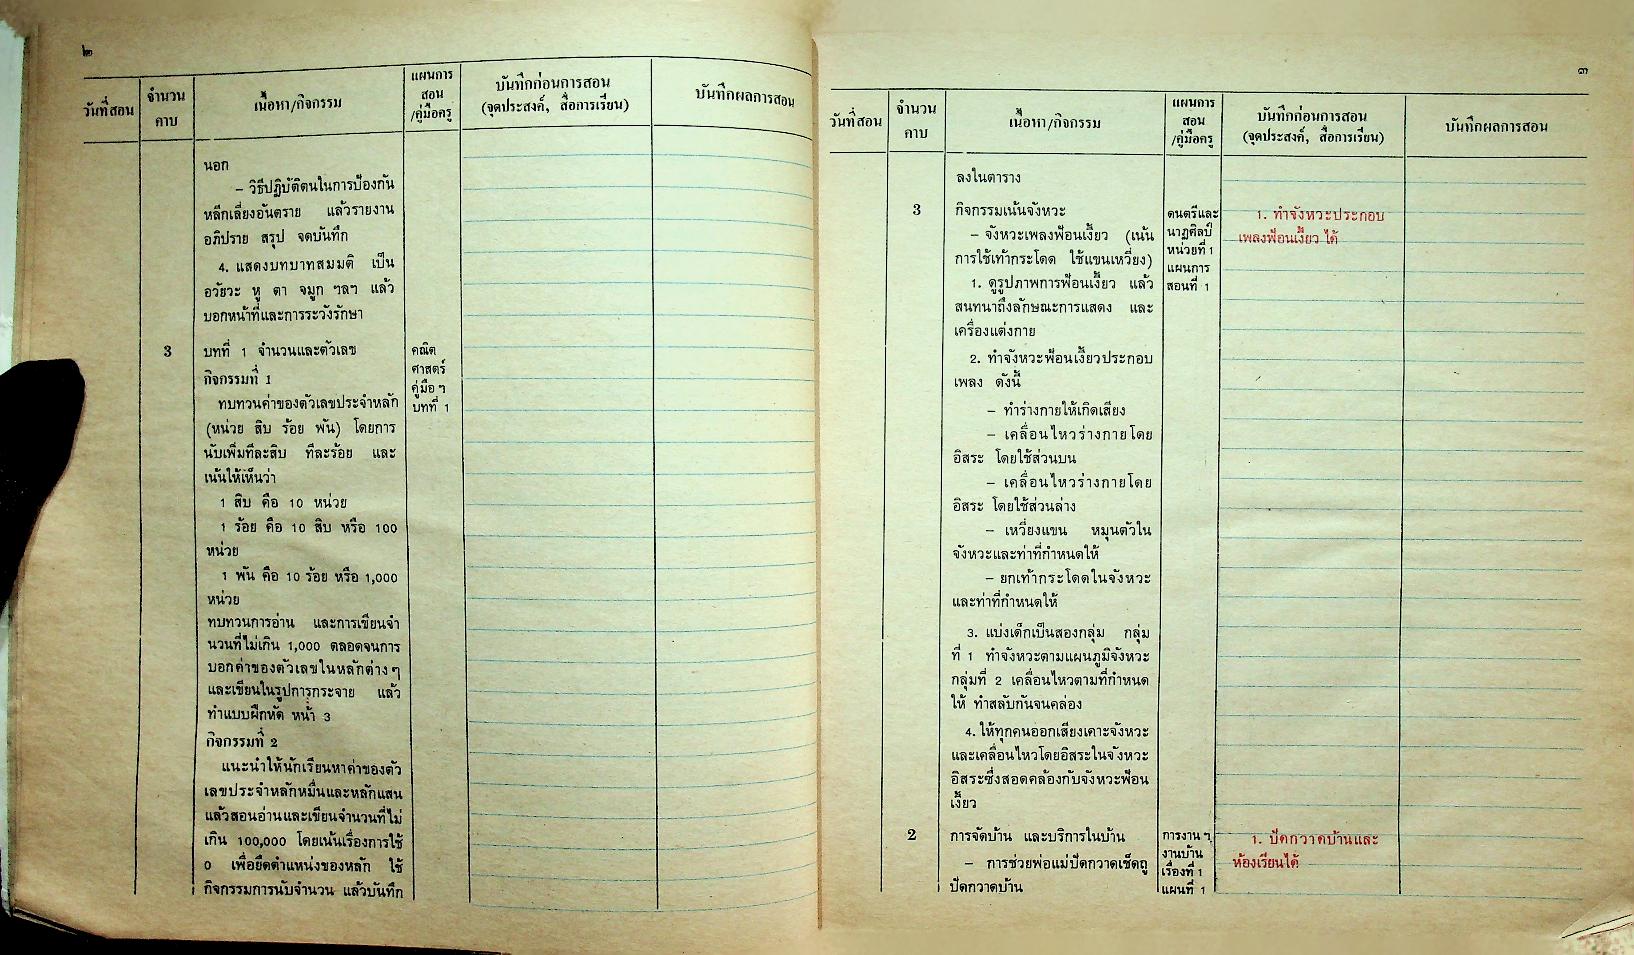 ๒
วันที่สอน
จำนวน
คาบ
เนื้อหา/กิจกรรม
แผนการ
สอน
/คู่มือครู
บันทึกก่อนการสอน
(จุดประสงค์, สื่อการเรียน)
บันทึกผลการสอน
นอก
– วิธีปฏิบัติตนในการป้องกัน
หลีกเลี่ยงอันตราย แล้วรายงาน
อภิปราย สรุป จดบันทึก
4. แสดงบทบาทสมมติ เป็น
อวัยวะ หู ตา จมูก ฯลฯ แล้ว
บอกหน้าที่และการระวังรักษา
3
บทที่ 1 จำนวนและตัวเลข
กิจกรรมที่ 1
ทบทวนค่าของตัวเลขประจำหลัก
(หน่วย สิบ ร้อย พัน) โดยการ
นับเพิ่มทีละสิบ ทีละร้อย และ
เน้นให้เห็นว่า
1 สิบ คือ 10 หน่วย
1 ร้อย คือ 10 สิบ หรือ 100
หน่วย
1 พัน คือ 10 ร้อย หรือ 1,000
หน่วย
ทบทวนการอ่าน และการเขียนจำ
นวนที่ไม่เกิน 1,000 ตลอดจนการ
บอกค่าของตัวเลขในหลักต่าง ๆ
และเขียนในรูปการกระจาย แล้ว
ทำแบบฝึกหัด หน้า 3
กิจกรรมที่ 2
แนะนำให้นักเรียนหาค่าของตัว
เลขประจำหลักหมื่นและหลักแสน
แล้วสอนอ่านและเขียนจำนวนที่ไม่
เกิน 100,000 โดยเน้นเรื่องการใช้
0 เพื่อยึดตำแหน่งของหลัก ใช้
กิจกรรมการนับจำนวน แล้วบันทึก
คณิต
ศาสตร์
คู่มือ ฯ
บทที่ 1
๓
วันที่สอน
จำนวน
คาบ
เนื้อหา/กิจกรรม
แผนการ
สอน
/คู่มือครู
บันทึกก่อนการสอน
(จุดประสงค์, สื่อการเรียน)
บันทึกผลการสอน
ลงในตาราง
3
กิจกรรมเน้นจังหวะ
– จังหวะเพลงฟ้อนเงี้ยว (เน้น
การใช้เท้ากระโดด ใช้แขนเหวี่ยง)
1. ดูรูปภาพการฟ้อนเงี้ยว แล้ว
สนทนาถึงลักษณะการแสดง และ
เครื่องแต่งกาย
2. ทำจังหวะฟ้อนเงี้ยวประกอบ
เพลง ดังนี้
– ทำร่างกายให้เกิดเสียง
– เคลื่อนไหวร่างกายโดย
อิสระ โดยใช้ส่วนบน
– เคลื่อนไหวร่างกายโดย
อิสระ โดยใช้ส่วนล่าง
– เหวี่ยงแขน หมุนตัวใน
จังหวะและท่าที่กำหนดให้
– ยกเท้ากระโดดในจังหวะ
และท่าที่กำหนดให้
3. แบ่งเด็กเป็นสองกลุ่ม กลุ่ม
ที่ 1 ทำจังหวะตามแผนภูมิจังหวะ
กลุ่มที่ 2 เคลื่อนไหวตามที่กำหนด
ให้ ทำสลับกันจนคล่อง
4. ให้ทุกคนออกเสียงเคาะจังหวะ
และเคลื่อนไหวโดยอิสระในจังหวะ
อิสระซึ่งสอดคล้องกับจังหวะฟ้อน
เงี้ยว
ดนตรีและ
นาฏศิลป์
หน่วยที่ 1
แผนการ
สอนที่ 1
1. ทำจังหวะประกอบ
เพลงฟ้อนเงี้ยว ได้
2
การจัดบ้าน และบริการในบ้าน
– การช่วยพ่อแม่ปัดกวาดเช็ดถู
ปัดกวาดบ้าน
การงาน ฯ
งานบ้าน
เรื่องที่ 1
แผนที่ 1
1. ปัดกวาดบ้านและ
ห้องเรียนได้